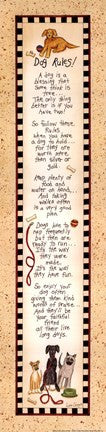 Dog Rules!
A dog is a
blessing that
Some think is
true....
The only thing
better is if
you have two!
So follow these
Rules
when you have
a dog to hold...
for they are
worth more
than silver or
gold.
Keep plenty of
food and
water on hand...
And taking
walks often
is a very good
plan.
Dogs like to
nap frequently
but then are
ready to run...
It's the way
they were
made.
It's the way
they have fun.
So enjoy your
dog often
giving them kind
words of praise.
And they'll be
your faithful
friend
all their live
long days.